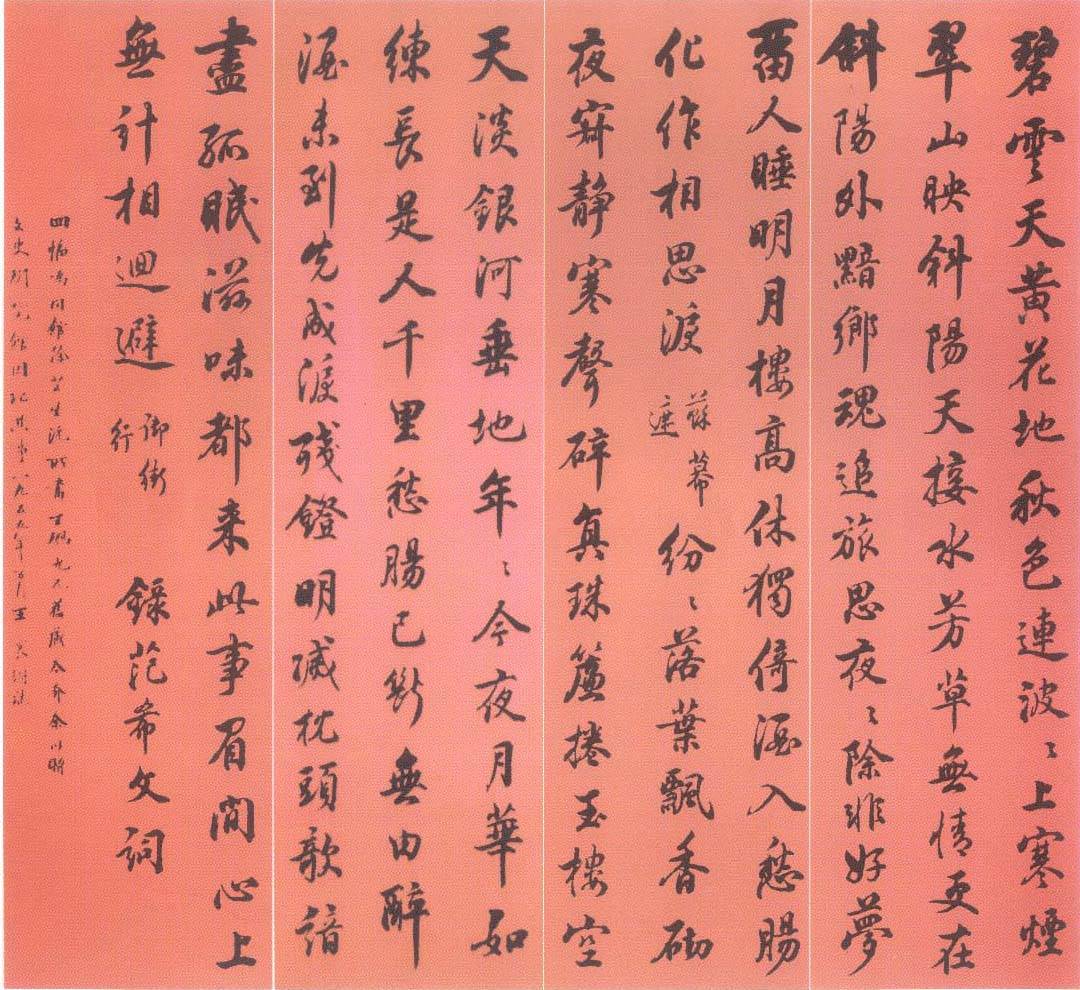 碧雲天黃花地秋色連波〻上寒煙
翠山映斜陽天接水芳草無情更在
斜陽外黯鄉魂追旅思夜〻除非好夢
留人睡明月樓高休獨倚酒入愁腸
化作相思淚 蘇幕遮 紛〻落葉飄香砌
夜寂靜寒聲碎真珠簾捲玉樓空
天淡銀河垂地年〻今夜月華如
練長是人千里愁腸已斷無由醉
酒未到先成淚殘鐙明滅枕頭欹諳
盡孤眠滋味都來此事眉間心上
無計相迴避 御街行 錄范希文詞
四幅為同館徐
文史研究館因記其